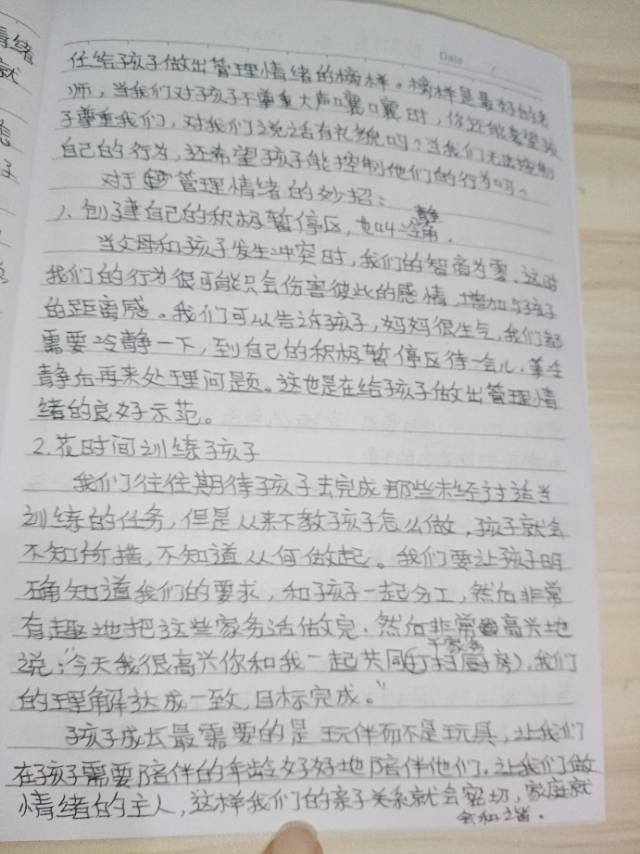 情绪
就
Date /
任给孩子做出管理情绪的榜样。榜样是最好的老
师，当我们对孩子不尊重大声嚷嚷时，你还能希望孩
子尊重我们，对我们说话有礼貌吗？当我们无法控制
自己的行为，还希望孩子能控制他们的行为吗？
对于管理情绪的妙招：
1、创建自己的积极暂停区，如叫冷静角.
当父母和孩子发生冲突时，我们的智商为零，这时
我们的行为很可能只会伤害彼此的感情，增加与孩子
的距离感。我们可以告诉孩子，妈妈很生气，我们都
需要冷静一下，到自己的积极暂停区待一会儿，等冷
静后再来处理问题。这也是在给孩子做出管理情
绪的良好示范。
2.花时间训练孩子
我们往往期待孩子去完成那些未经过适当
训练的任务，但是从来不教孩子怎么做，孩子就会
不知所措，不知道从何做起。我们要让孩子明
确知道我们的要求，和孩子一起分工，然后非常
有趣地把这些家务活做完.然后非常高兴地
说："今天我很高兴你和我一起共同干家务(打扫厨房)，我们
的理解达成一致，目标完成。"
孩子成长最需要的是玩伴而不是玩具，让我们
在孩子需要陪伴的年龄好好地陪伴他们，让我们做
情绪的主人，这样我们的亲子关系就会密切，家庭就
会和谐.